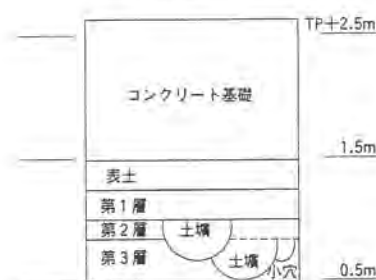 TP+2.5m
コンクリート基礎
1.5m
表土
第1層
第2層
土壙
第3層
土壙
小穴
0.5m